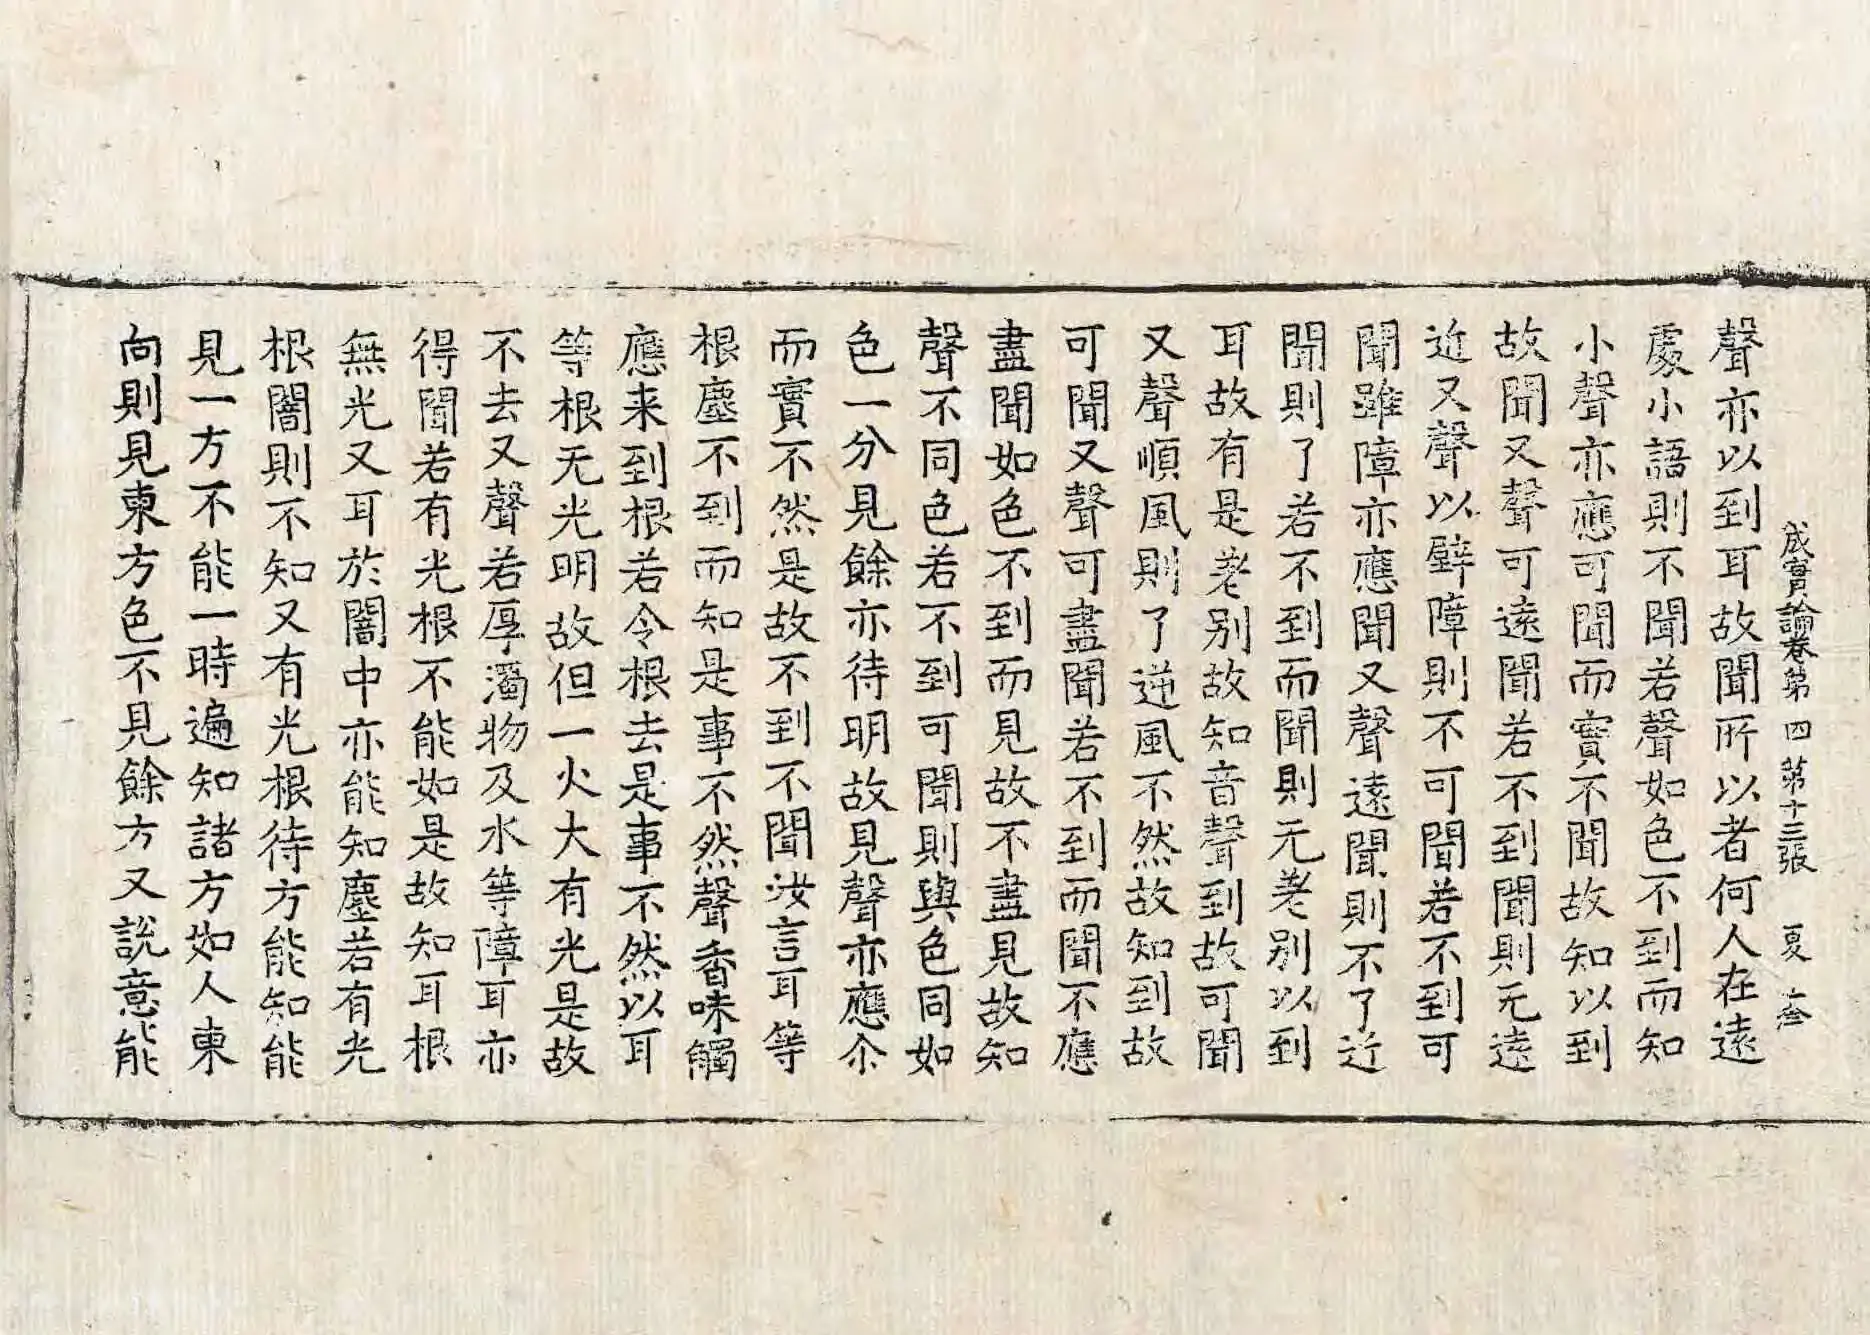 成實論卷第四 第十三張 夏
聲亦以到耳故聞所以者何人在遠
處小語則不聞若聲如色不到而知
小聲亦應可聞而實不聞故知以到
故聞又聲可遠聞若不到聞則无遠
近又聲以壁障則不可聞若不到可
聞雖障亦應聞又聲遠聞則不了近
聞則了若不到而聞則无差別以到
耳故有是差別故知音聲到故可聞
又聲順風則了逆風不然故知到故
可聞又聲可盡聞若不到而聞不應
盡聞如色不到而見故不盡見故知
聲不同色若不到可聞則與色同如
色一分見餘亦待明故見聲亦應尒
而實不然是故不到不聞汝言耳等
根塵不到而知是事不然聲香味觸
應来到根若令根去是事不然以耳
等根无光明故但一火大有光是故
不去又聲若厚濁物及水等障耳亦
得聞若有光根不能如是故知耳根
無光又耳於闇中亦能知塵若有光
根闇則不知又有光根待方能知能
見一方不能一時遍知諸方如人東
向則見東方色不見餘方又說意能